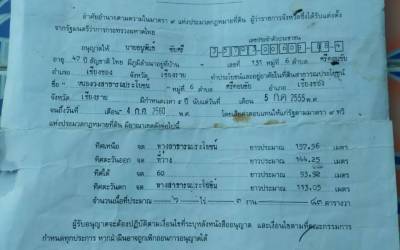 อาศัยอำนาจตามความในมาตรา ๙ แห่งประมวลกฎหมายที่ดิน ผู้ว่าราชการจังหวัดซึ่งได้รับแต่งตั้ง
จากรัฐมนตรีว่าการกระทรวงมหาดไทย
เลขประจำตัวประชาชน
อนุญาตให้
อายุ 47 ปี สัญชาติ ไทย มีภูมิลำเนาอยู่ที่บ้าน เลขที่ 131 หมู่ที่ 6 ตำบล ศรีดอนชัย
อำเภอ เชียงของ จังหวัด เชียงราย ทำประโยชน์และอยู่อาศัยในที่ดินสาธารณประโยชน์
ชื่อ หมู่ที่ 6 ตำบล ศรีดอนชัย อำเภอ เชียงของ
จังหวัด เชียงราย มีกำหนดเวลา ๕ ปี นับแต่วันที่ 5 ก.ค. 2555
จนถึงวันที่ เดือน 4 ก.ค. 2560 พ.ศ. โดยเสียค่าตอบแทนให้แก่รัฐตามมาตรา ๙ ทวิ
แห่งประมวลกฎหมายที่ดิน มีอาณาเขตดังต่อไปนี้
ทิศเหนือ จด ทางสาธารณประโยชน์ ยาวประมาณ 137.56 เมตร
ทิศตะวันออก จด ที่ว่าง ยาวประมาณ 144.25 เมตร
ทิศใต้ จด 60 ยาวประมาณ 93.92 เมตร
ทิศตะวันตก จด ทางสาธารณประโยชน์ ยาวประมาณ 113.05 เมตร
จำนวนเนื้อที่ประมาณ ไร่ งาน ตารางวา
ผู้รับอนุญาตจะต้องปฏิบัติตามเงื่อนไขที่ระบุหลังหนังสืออนุญาต และเงื่อนไขตามที่คณะกรรมการ
กำหนดทุกประการ หากฝ่าฝืนอาจถูกเพิกถอนการอนุญาตได้